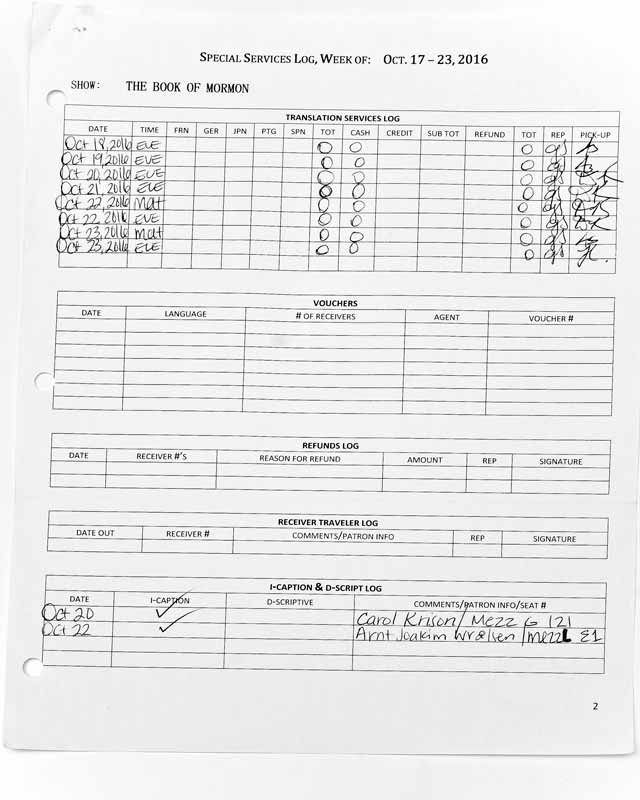 SPECIAL SERVICES LOG, WEEK OF: OCT. 17 – 23, 2016
SHOW: THE BOOK OF MORMON
TRANSLATION SERVICES LOG
DATE TIME FRN GER JPN PTG SPN TOT CASH CREDIT SUB TOT REFUND TOT REP PICK-UP
Oct 18, 2016 EVE 0 0 0
Oct 19, 2016 EVE 0 0 0
Oct 20, 2016 EVE 0 0 0
Oct 21, 2016 EVE 0 0 0
Oct 22, 2016 Mat 0 0 0
Oct 22, 2016 EVE 0 0 0
Oct 23, 2016 Mat 0 0 0
Oct 23, 2016 EVE 0 0 0
VOUCHERS
DATE LANGUAGE # OF RECEIVERS AGENT VOUCHER #
REFUNDS LOG
DATE RECEIVER #'S REASON FOR REFUND AMOUNT REP SIGNATURE
RECEIVER TRAVELER LOG
DATE OUT RECEIVER # COMMENTS/PATRON INFO REP SIGNATURE
I-CAPTION & D-SCRIPT LOG
DATE I-CAPTION D-SCRIPTIVE COMMENTS/PATRON INFO/SEAT #
Oct 20 ✓ Carol Krison/ Mezz G 121
Oct 22 ✓ Arnt Joakim /Mezz L E1
2